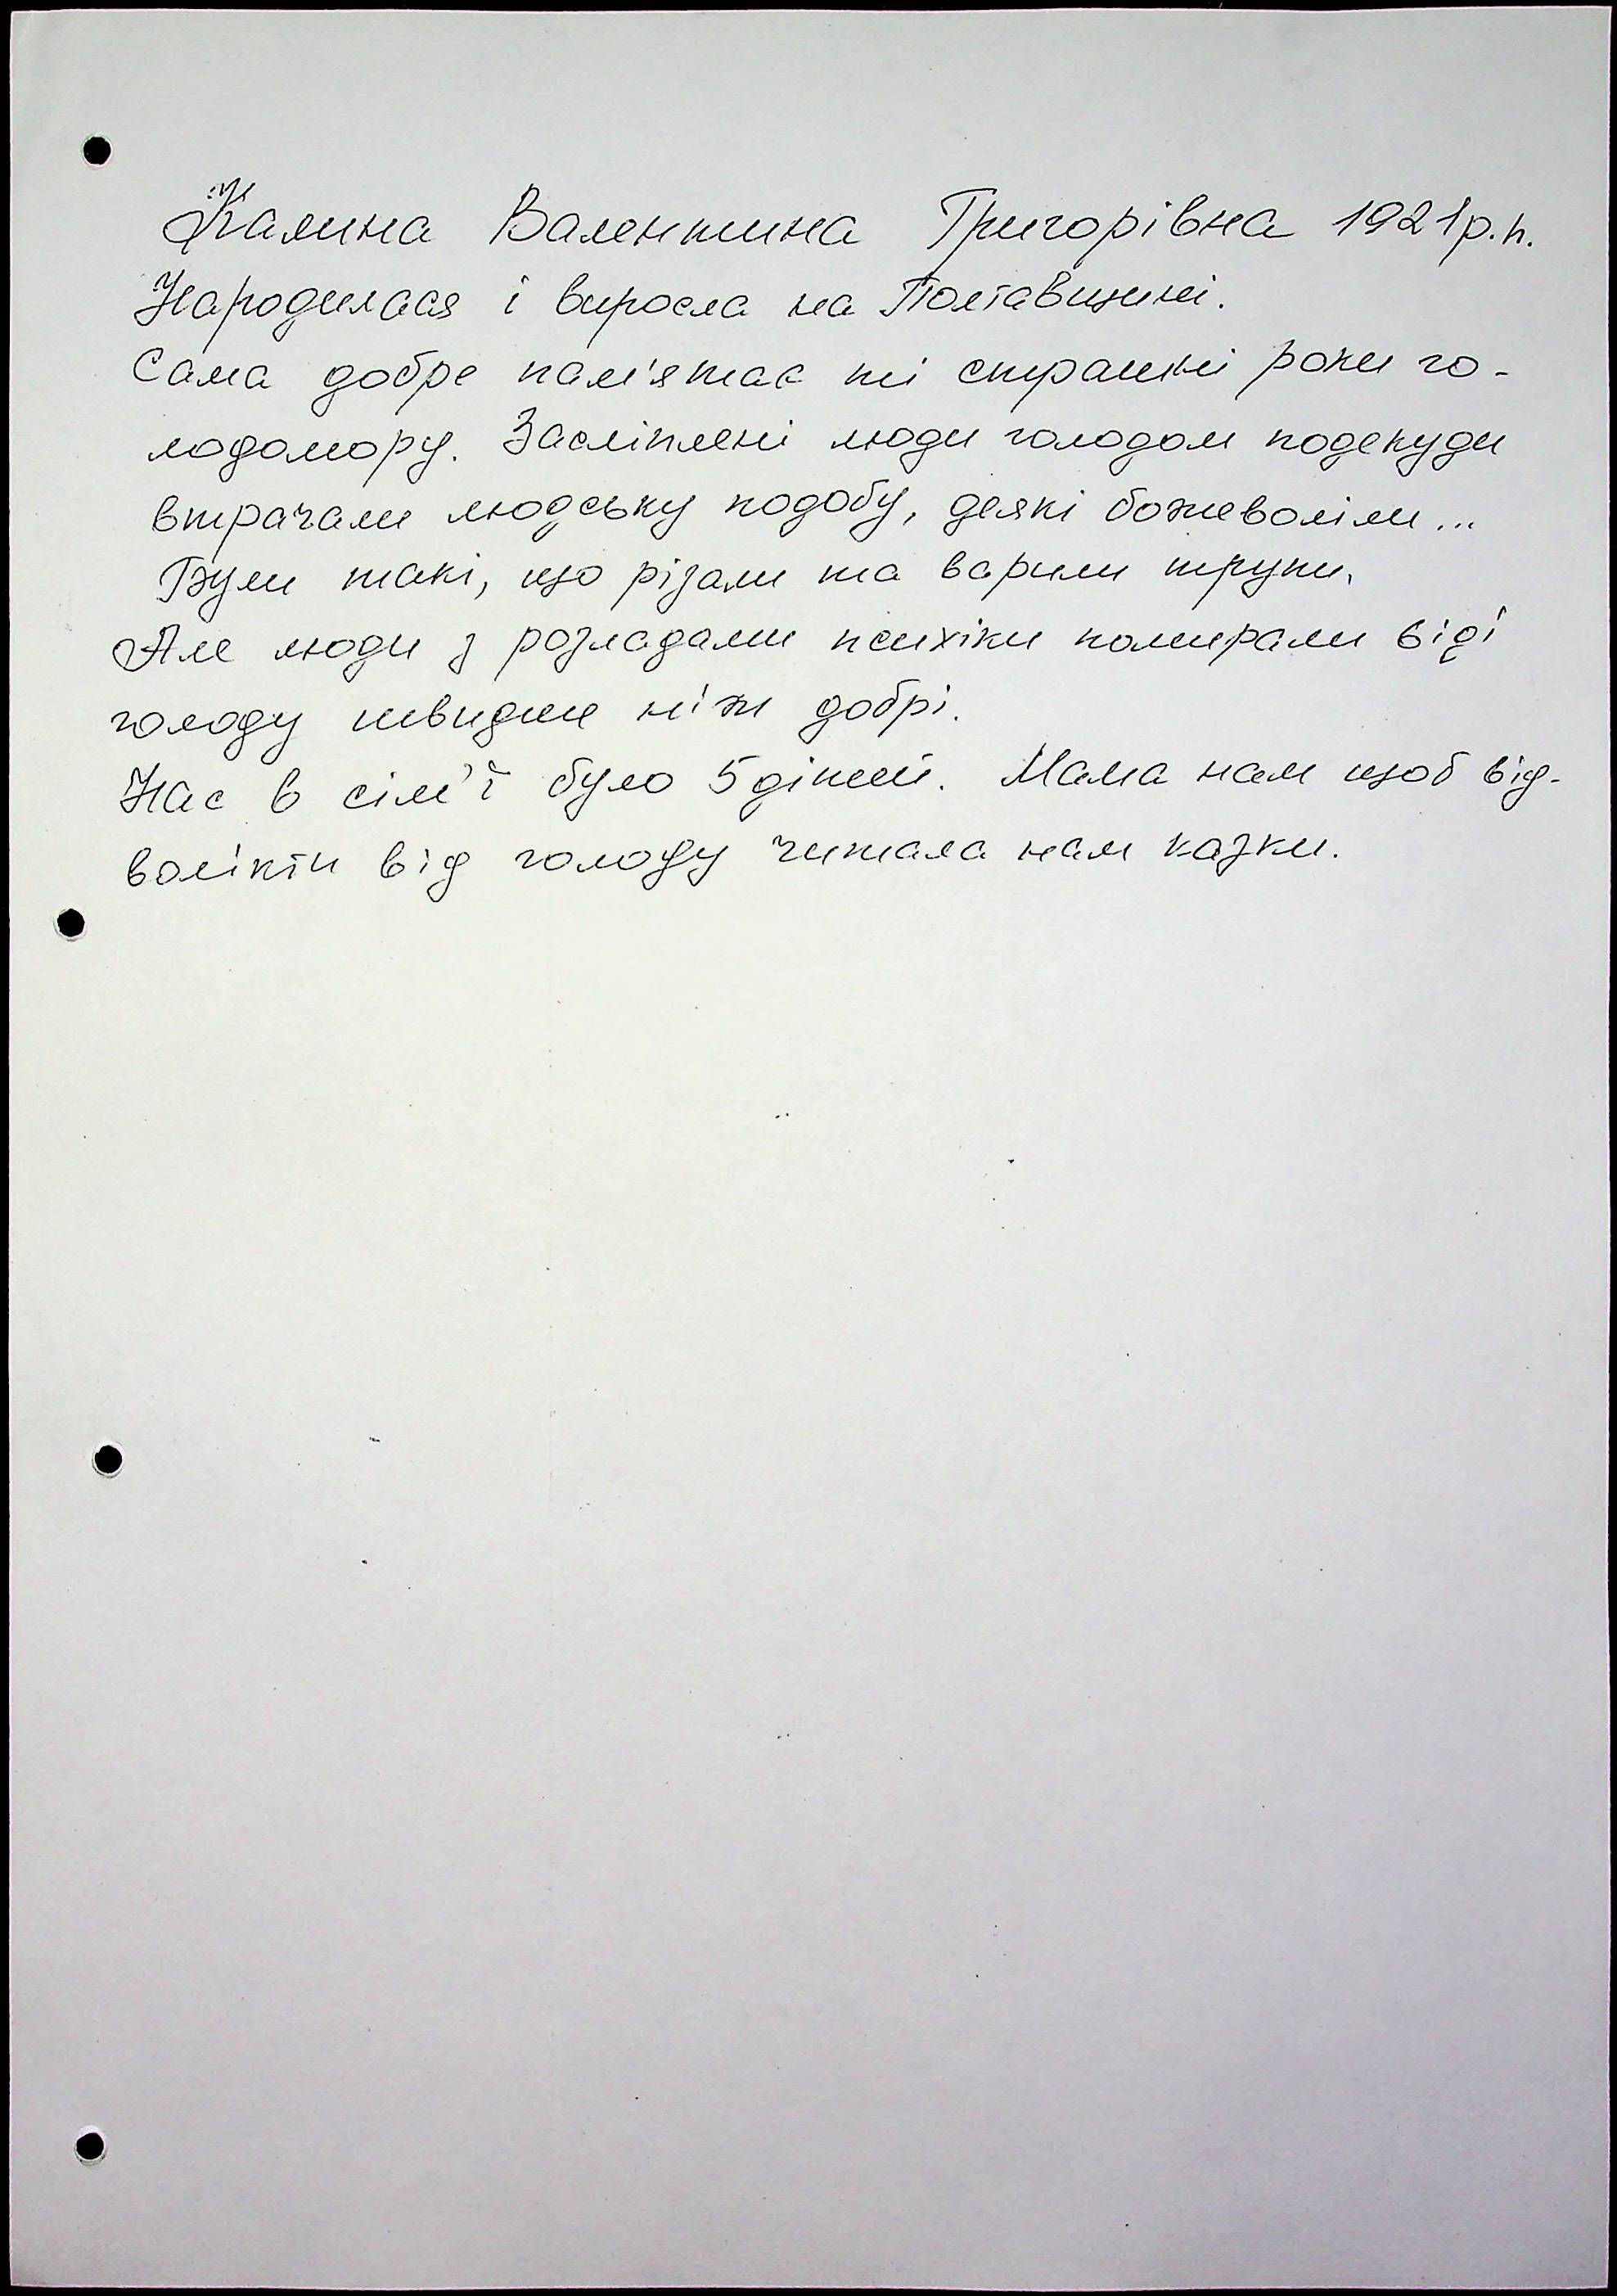 Калина Валентина Григорівна 1921р.н.
Народилася і виросла на Полтавщині.
Сама добре пам'ятає ті страшні роки го-
лодомору. Засліплені люди голодом подекуди
втрачали людську подобу, деякі божеволіли...
Були такі, що різали та варили трупи.
Але люди з розладами психіки помирали від
голоду швидше ніж добрі.
Нас в сім'ї було 5 дітей. Мама нам щоб від-
волікти від голоду читала нам казки.